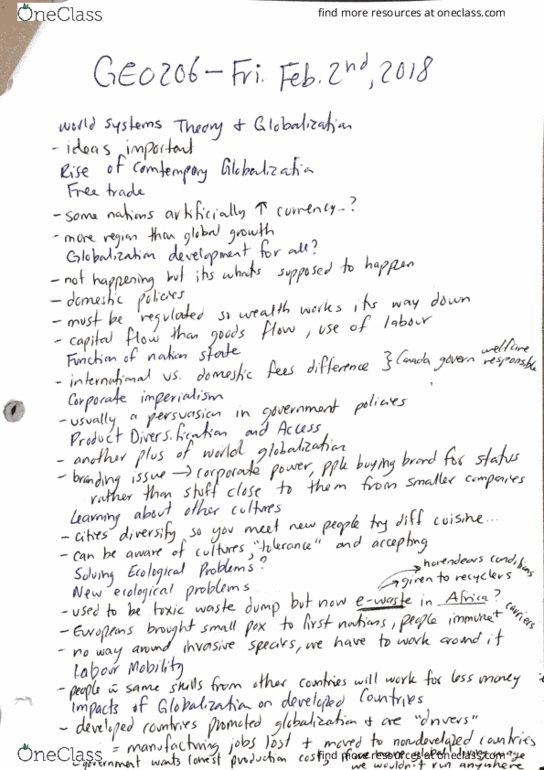 OneClass
find more resources at oneclass.com
GEO206 - Fri. Feb. 2nd, 2018
World Systems Theory + Globalization
- ideas important
Rise of Comtempory Globalization
Free trade
- some nations artificially ↑ currency..?
- more region than global growth
Globalization development for all?
- not happening but its whats supposed to happen
- domestic policies
- must be regulated so wealth works its way down
- capital flow than goods flow, use of labour
Function of nation state
- international vs. domestic fees difference } Canada govern welfare responsible
Corporate imperialism
- usually a persuasion in government policies
Product Diversification and Access
- another plus of world globalization
- branding issue → corporate power, pple buying brand for status
rather than stuff close to them from smaller companies
Learning about other cultures
- cities diversify so you meet new people try diff cuisine...
- can be aware of cultures, "tolerance" and accepting
Solving Ecological Problems?
→ horendous conditions
New ecological problems
→ given to recyclers
- used to be toxic waste dump but now e-waste in Africa?
- Europeans brought small pox to first nations, people immune carriers
- no way around invasive species, we have to work around it
Labour Mobility
- people w same skills from other countries will work for less money
Impacts of Globalization on developed Countries
- developed countries promoted globalization + are "drivers"
= manufacturing jobs lost + moved to nondeveloped countries
- government wants lowest production costs
we wouldn't run anywhere
OneClass
find more resources at oneclass.com